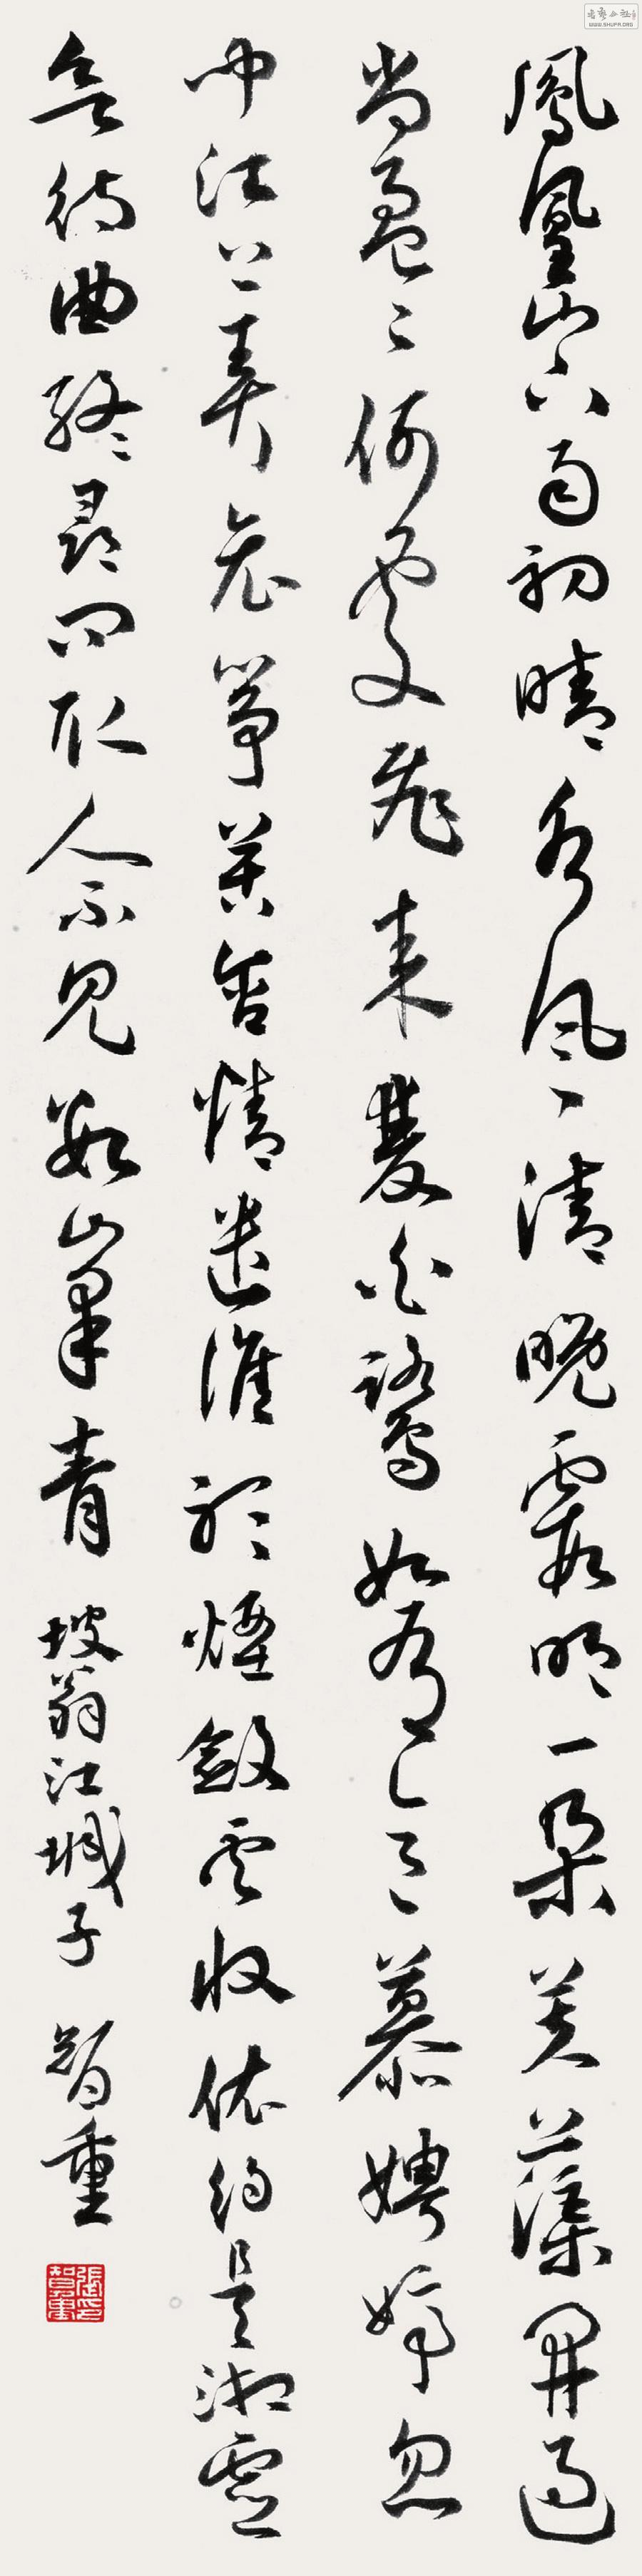 鳳凰山下雨初晴水風清晚霞明一朵芙蕖開過
尚盈〻何處飛來雙白鷺如有意慕娉婷忽
聞江上弄哀箏苦含情遣誰聽煙斂雲收依約是湘靈
欲待曲終尋問取人不見數峯青 坡翁江城子 智重
張智重印